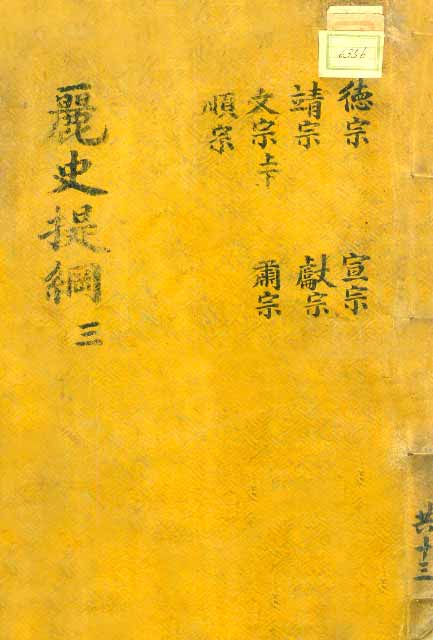 麗史提綱 三
徳宗
靖宗
文宗上下
順宗
宣宗
獻宗
肅宗
共十三